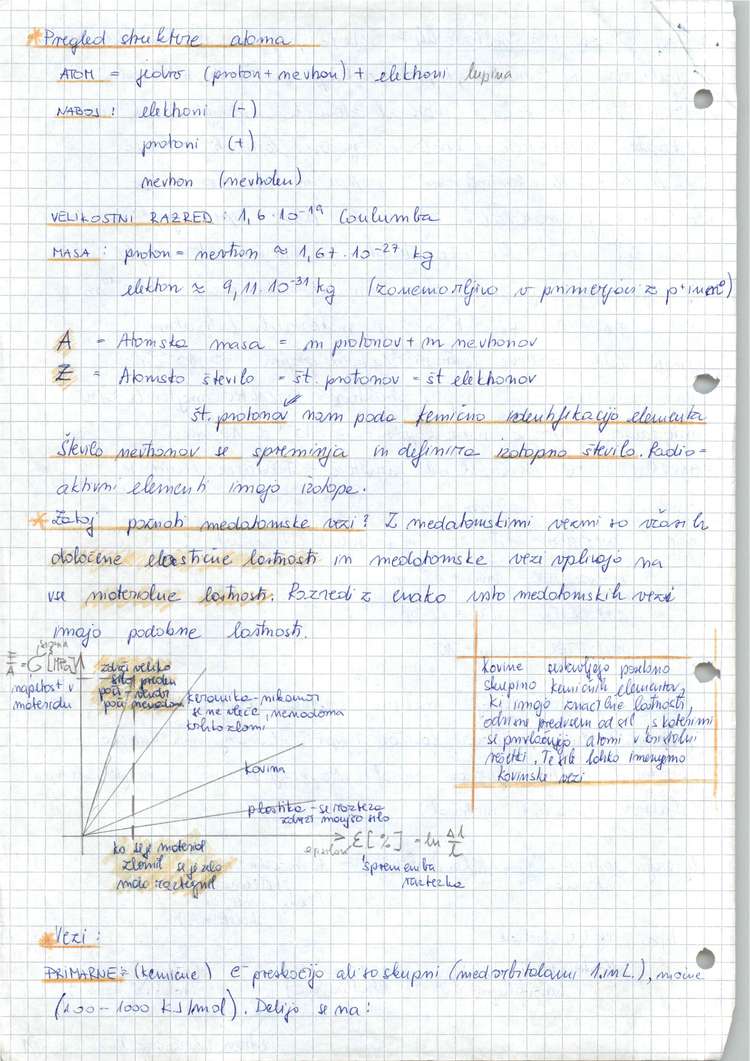 * Pregled strukture atoma
ATOM = jedro (proton + nevtron) + elektroni lupina
NABOJ : elektroni (-)
protoni (+)
nevtron (nevtralen)
VELIKOSTNI RAZRED : 1,6 · 10⁻¹⁹ Coulumba
MASA : proton = nevtron ≈ 1,67 · 10⁻²⁷ kg
elektron ≈ 9,11 · 10⁻³¹ kg (zanemarljivo v primerjavi z p⁺ in n⁰)
A = Atomska masa = m protonov + m nevtronov
Z = Atomsko število = št. protonov = št elektronov
št. protonov nam poda kemično identifikacijo elementa
Število nevtronov se spreminja in definira izotopno število. Radio-
aktivni elementi imajo izotope.
* Zakaj poznati medatomske vezi? Z medatomskimi vezmi so včasih
določene elastične lastnosti in medatomske vezi vplivajo na
vse materialne lastnosti. Razredi z enako vrsto medatomskih vezi
imajo podobne lastnosti.
F/A = σ [MPa]
napetost v
materialu
zdrži veliko
silo preden
poči
poči nenadoma
keramika - nikamor
se ne vleče, nenadoma
krhko zlomi
kovina
plastika - se razteza
zdrži manjšo silo
epsilon ε [%] = ln Δl/L
sprememba
raztezka
ko se je material
zlomil se je zelo
malo raztegnil
Kovine sestavljajo posebno
skupino kemičnih elementov,
ki imajo značilne lastnosti,
odvisne predvsem od sil, s katerimi
se privlačujejo atomi v kristalni
rešetki. Te sile lahko imenujemo
kovinske vezi
* Vezi :
PRIMARNE: (kemične) e⁻ preskočijo ali so skupni (med orbitalami 1. in 2.), močne
(100 - 1000 kJ/mol). Delijo se na: